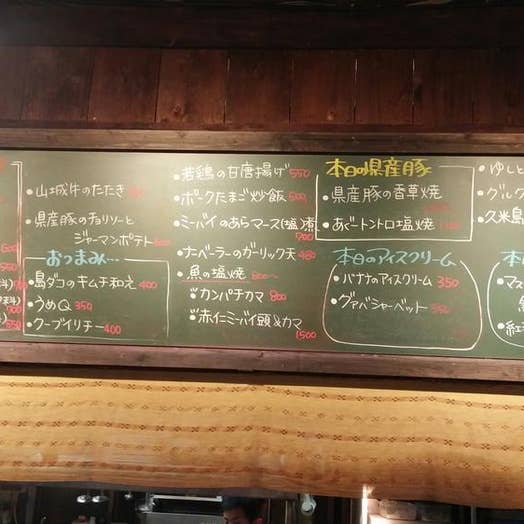 ・山城牛のたたき
・県産豚のチョリソーと
ジャーマンポテト
おつまみ…
・島ダコのキムチ和え 400
・うめQ 350
・クーブイリチー 400
・若鶏の甘唐揚げ 550
・ポークたまご炒飯 500
・ミーバイのあらマース(塩)煮
700
・ナーベーラーのガーリック天 480
・魚の塩焼 800〜
カンパチカマ 800
赤仁ミーバイ頭&カマ
1500
本日の県産豚
・県産豚の香草焼
・あぐートントロ塩焼
本日のアイスクリーム
・バナナのアイスクリーム 350
・グァバシャーベット 350
・ゆしど
・グルク
・久米島
・マス
・紅